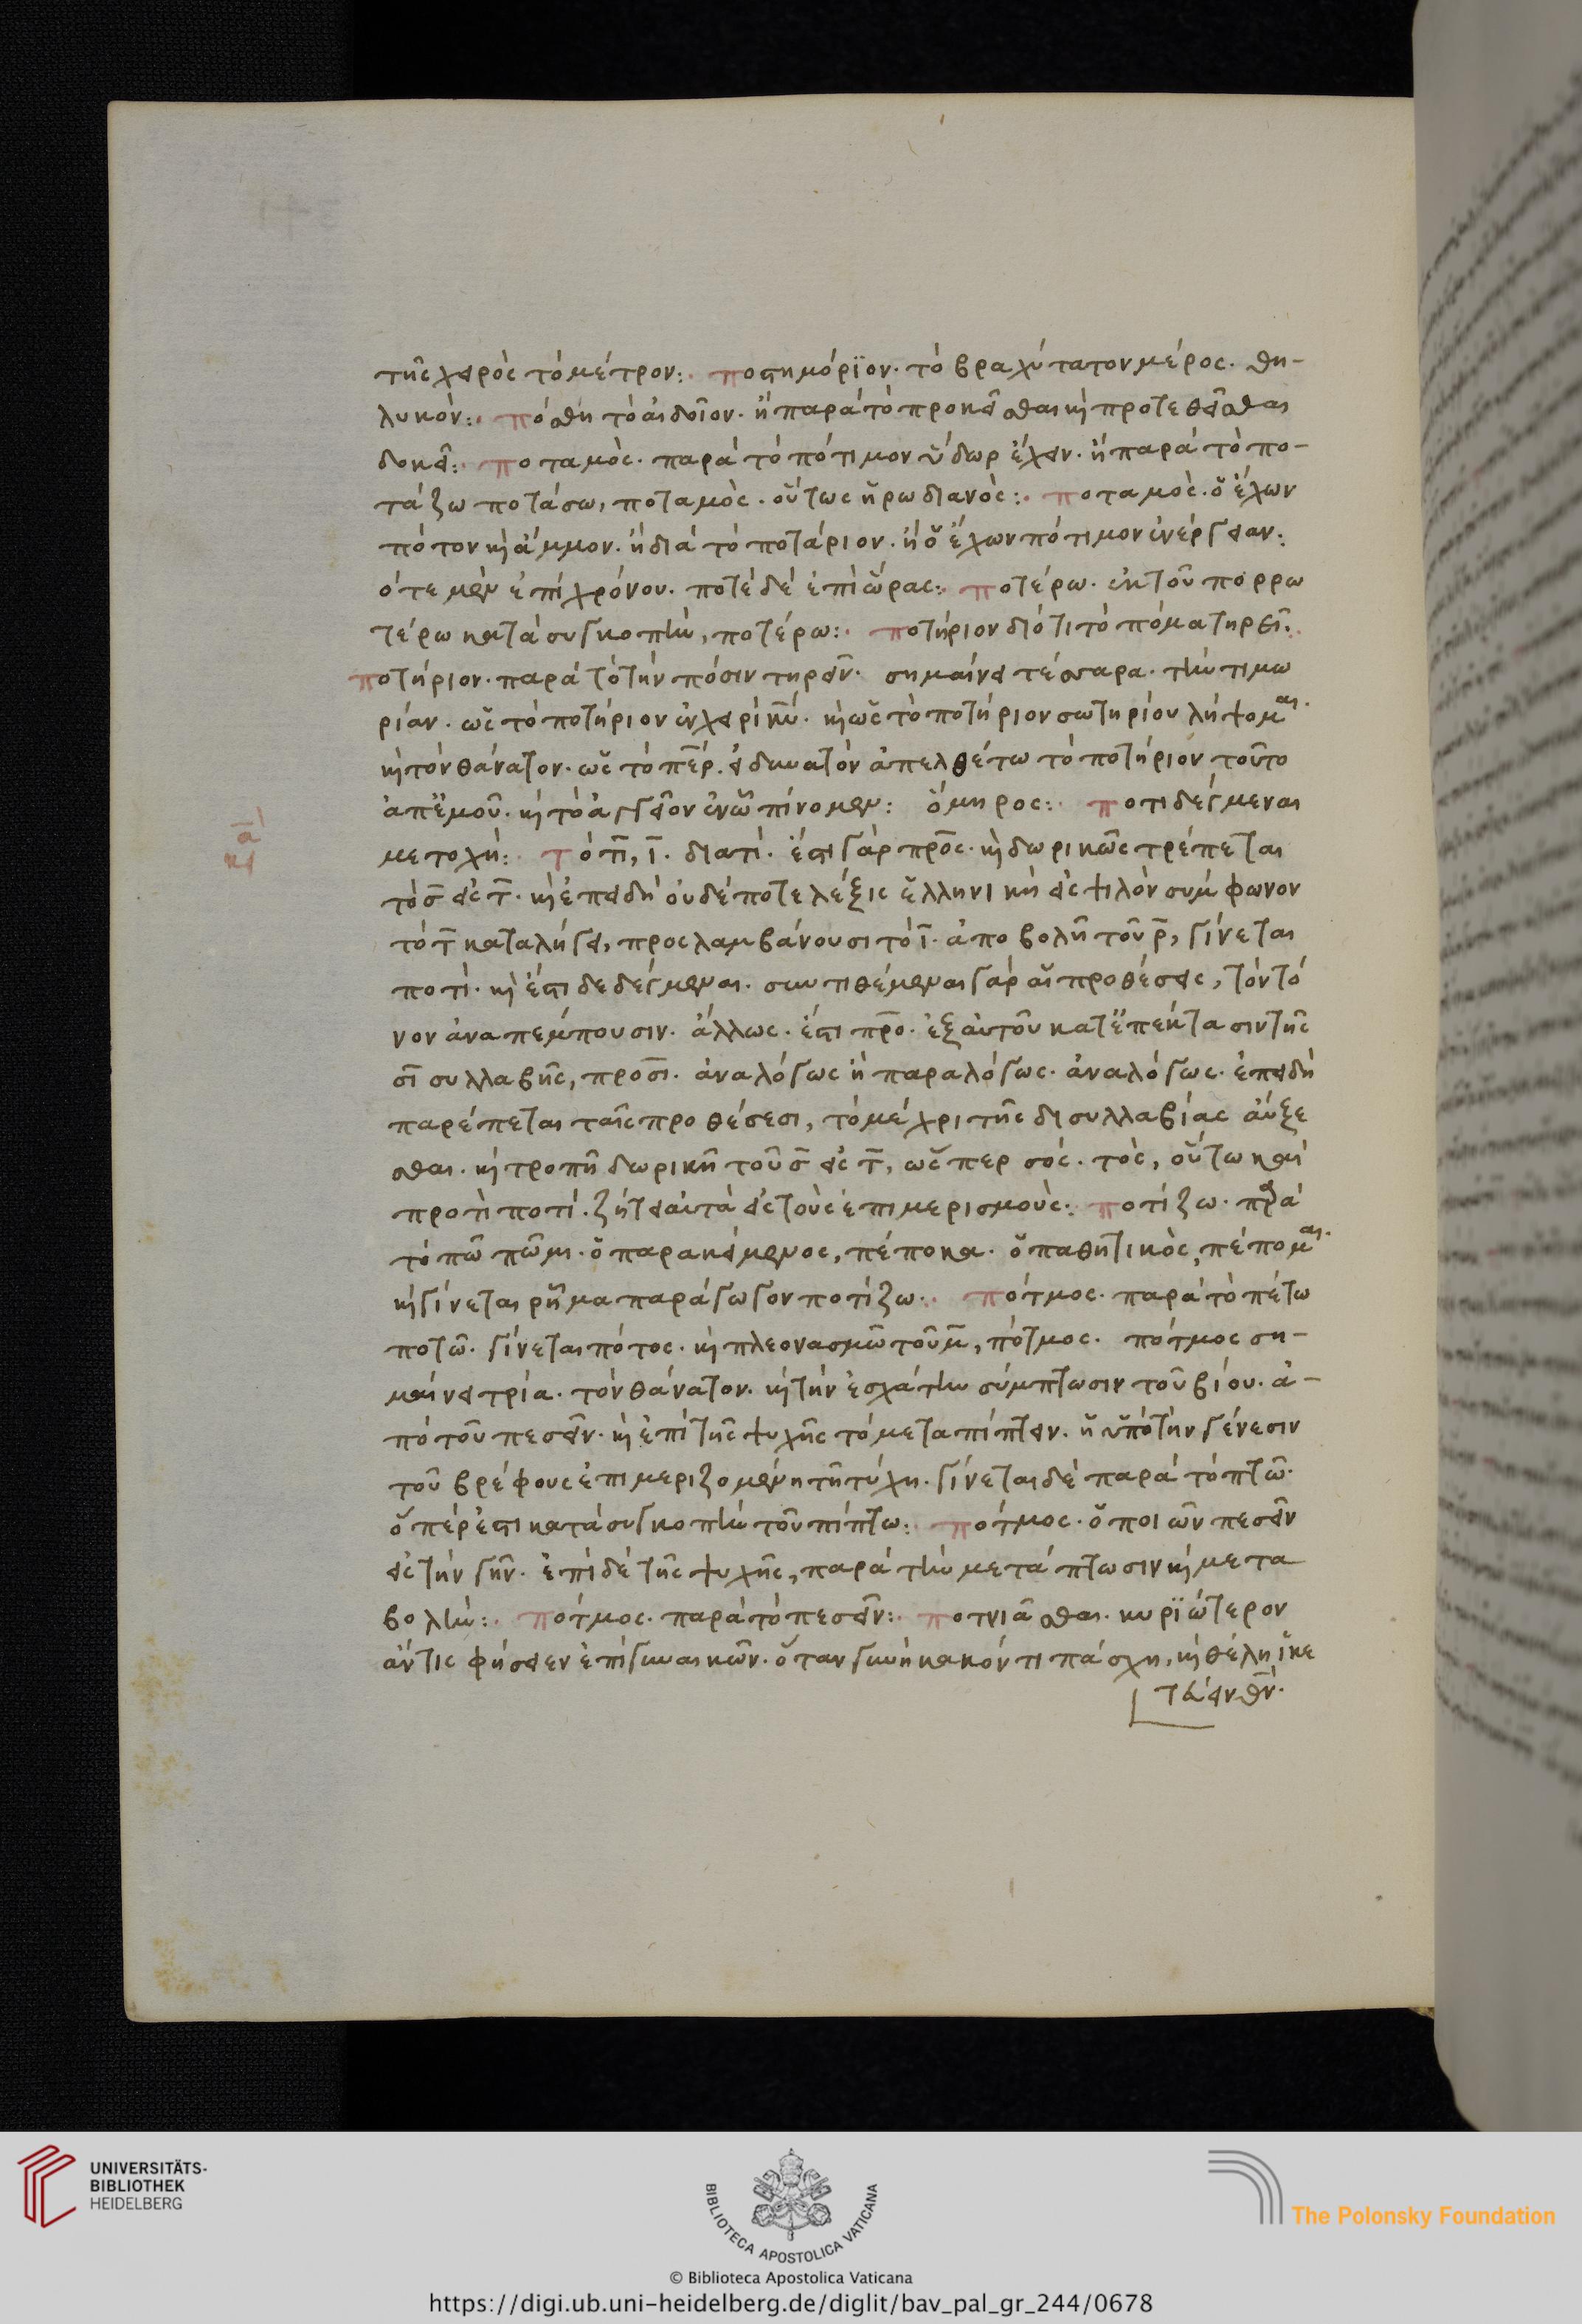 τῆς χειρὸς τὸ μέτρον: ποστημόρϊον· τὸ βραχύτατον μέρος· θη-
λυκόν: πόσθη τὸ αἰδοῖον· ἢ παρὰ τὸ προκεῖσθαι κὴ προτεθεῖσθαι
δοκεῖ: ποταμὸς· παρὰ τὸ πότιμον ὕδωρ ἔχειν· ἢ παρὰ τὸ πο-
τάζω ποτάσω, ποταμὸς· οὕτως ἡρωδιανὸς: ποταμὸς· ὁ ἔχων
πότον κὴ ἄμμον· ἢ διὰ τὸ ποτάριον· ἢ ὁ ἔχων πότιμον ἐνέργειαν:
ότε μὲν ἐπὶ χρόνου· ποτὲ δὲ ἐπὶ ὥρας: ποτέρω· ἐκ τοῦ πορρω
τέρω κατὰ συγκοπὴν, ποτέρω: ποτήριον διότι τὸ πόμα τηρεῖ:
ποτήριον· παρὰ τὸ τὴν πόσιν τηρεῖν· σημαίνει τέσσαρα· τὴν τιμω
ρίαν· ὡς τὸ ποτήριον ἐν χειρὶ κ̅υ̅· κὴ ὡς τὸ ποτήριον σωτηρίου λήψομαι·
κὴ τὸν θάνατον· ὡς τὸ π̅ε̅ρ· εἰ δυνατὸν ἀπελθέτω τὸ ποτήριον τοῦτο
ἀπ' ἐμοῦ· κὴ τὸ ἀγγεῖον ἐν ᾧ πίνομεν: ὅμηρος: ποτιδέγμεναι
μετοχὴ: τὸ τ̅ι̅, ι̅· διατί· ἔστι γὰρ πρὸς· κὴ δωρικῶς τρέπεται
τὸ σ̅ εἰς τ̅· κὴ ἐπειδὴ οὐδέποτε λέξις ἑλληνικὴ εἰς ψιλὸν σύμφωνον
τὸ τ̅ καταλήγει, προσλαμβάνουσι τὸ ι̅· ἀποβολῆ τοῦ ρ̅, γίνεται
ποτὶ· κὴ ἔστι δεδέγμεναι· συντιθέμεναι γὰρ αἱ προθέσεις, τὸν τό
νον ἀναπέμπουσιν· ἄλλως· ἔστι πρὸ· ἐξ αὐτοῦ κατ' ἐπέκτασιν τῆς
σ̅ι̅ συλλαβῆς, προσι· ἀναλόγως ἢ παραλόγως· ἀναλόγως· ἐπειδὴ
παρέπεται ταῖς προθέσεσι, τὸ μέχρι τῆς δισυλλαβίας αὔξε
σθαι· κὴ τροπῆ δωρικῆ τοῦ σ̅ εἰς τ̅, ὥσπερ σὸς· τὸς, οὕτω καὶ
προτὶ ποτί· ζήτει αὐτὰ εἰς τοὺς ἐπιμερισμοὺς: ποτίζω· παρὰ
τὸ πῶ πῶμι· ὁ παρακείμενος, πέποκα· ὁ παθητικὸς, πέπομαι·
κὴ γίνεται ρῆμα παράγωγον ποτίζω: πότμος· παρὰ τὸ πέτω
ποτῶ· γίνεται πότος· κὴ πλεονασμῶ τοῦ μ̅, πότμος· πότμος ση-
μαίνει τρία· τὸν θάνατον· κὴ τὴν ἐσχάτην σύμπτωσιν τοῦ βίου· ἀ-
πὸ τοῦ πεσεῖν· κὴ ἐπὶ τῆς ψυχῆς τὸ μεταπίπτειν· ἢ ὑπὸ τὴν γένεσιν
τοῦ βρέφους ἐπιμεριζομένη τῆ τύχη· γίνεται δὲ παρὰ τὸ πτῶ·
ὅπέρ ἐστι κατὰ συγκοπὴν τοῦ πίπτω: πότμος· ὁ ποιῶν πεσεῖν
εἰς τὴν γῆν· ἐπὶ δὲ τῆς ψυχῆς, παρὰ τὴν μετάπτωσιν κὴ μετα
βολὴν: πότμος· παρὰ τὸ πεσεῖν: ποτνιᾶσθαι· κυρϊώτερον
ἄν τις φήσειεν ἐπὶ γυναικῶν· ὅταν γυνὴ κακόν τι πάσχη, κὴ θέλη ἱκε